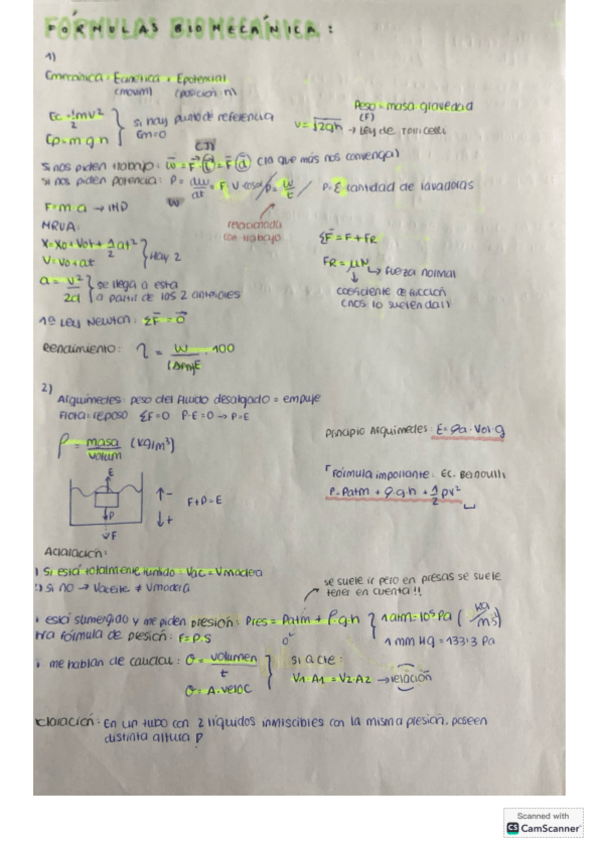 FÓRMULAS BIOMECÁNICA:
1)
Emecánica = Ecinética + Epotencial
(movim) (posición n)
Ec = 1/2 mv²
Ep = m g h
} si hay punto de referencia
Em=0
Peso = masa · gravedad
(F)
v = √2gh → Ley de Torricelli
(J)
Si nos piden trabajo: (la que más nos convenga)
si nos piden potencia: P = dw/dt = F · v · cosα / P = w/t / P·E cantidad de lavadoras
W
F = m · a → IND
relacionada
con trabajo
MRUA:
x = x0 + v0t + 1/2 at²
v = v0 + at
} Hay 2
ΣF = F + FR
FR = μN → fuerza normal
a = v²/2d } se llega a esta
a partir de los 2 anteriores
coeficiente de fricción
(nos lo suelen dar)
1ª Ley Newton: ΣF = 0
Rendimiento: η = W · 100
2)
Arquímedes: peso del fluido desalojado = empuje
Flota: reposo ΣF=0 P-E=0 → P=E
Principio Arquímedes: E = ρa · Vol · g
ρ = masa/volum (kg/m³)
Fórmula importante: EC. Bernoulli
P = Patm + ρ · g · h + 1/2 ρv²
E
P
F
↑ -
↓ +
F + P = E
Aclaración:
) Si está totalmente hundido: Vac = Vmadera
) si no → Vaceite ≠ Vmadera
se suele ir pero en presas se suele
tener en cuenta!!
está sumergido y me piden presión: Pres = Patm + ρ · g · h } 1 atm = 10⁵ Pa
tra fórmula de presión: F = P · S
0
1 mm HG = 133'3 Pa
me hablan de caudal: Q = volumen/t
Q = A · veloc
si Q cte:
V1 · A1 = V2 · A2 → relación
claración: En un tubo con 2 líquidos inmiscibles con la misma presión, poseen
distinta altura
Scanned with
CS CamScanner